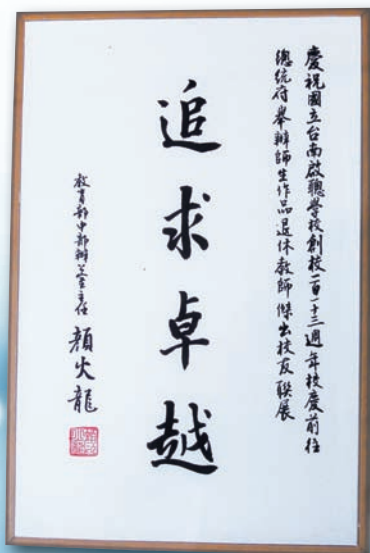 慶祝國立台南啟聰學校創校一百一十三週年校慶前往
總統府舉辦師生作品退休教師傑出校友聯展
追求卓越
教育部中部辦公室主任 顏火龍